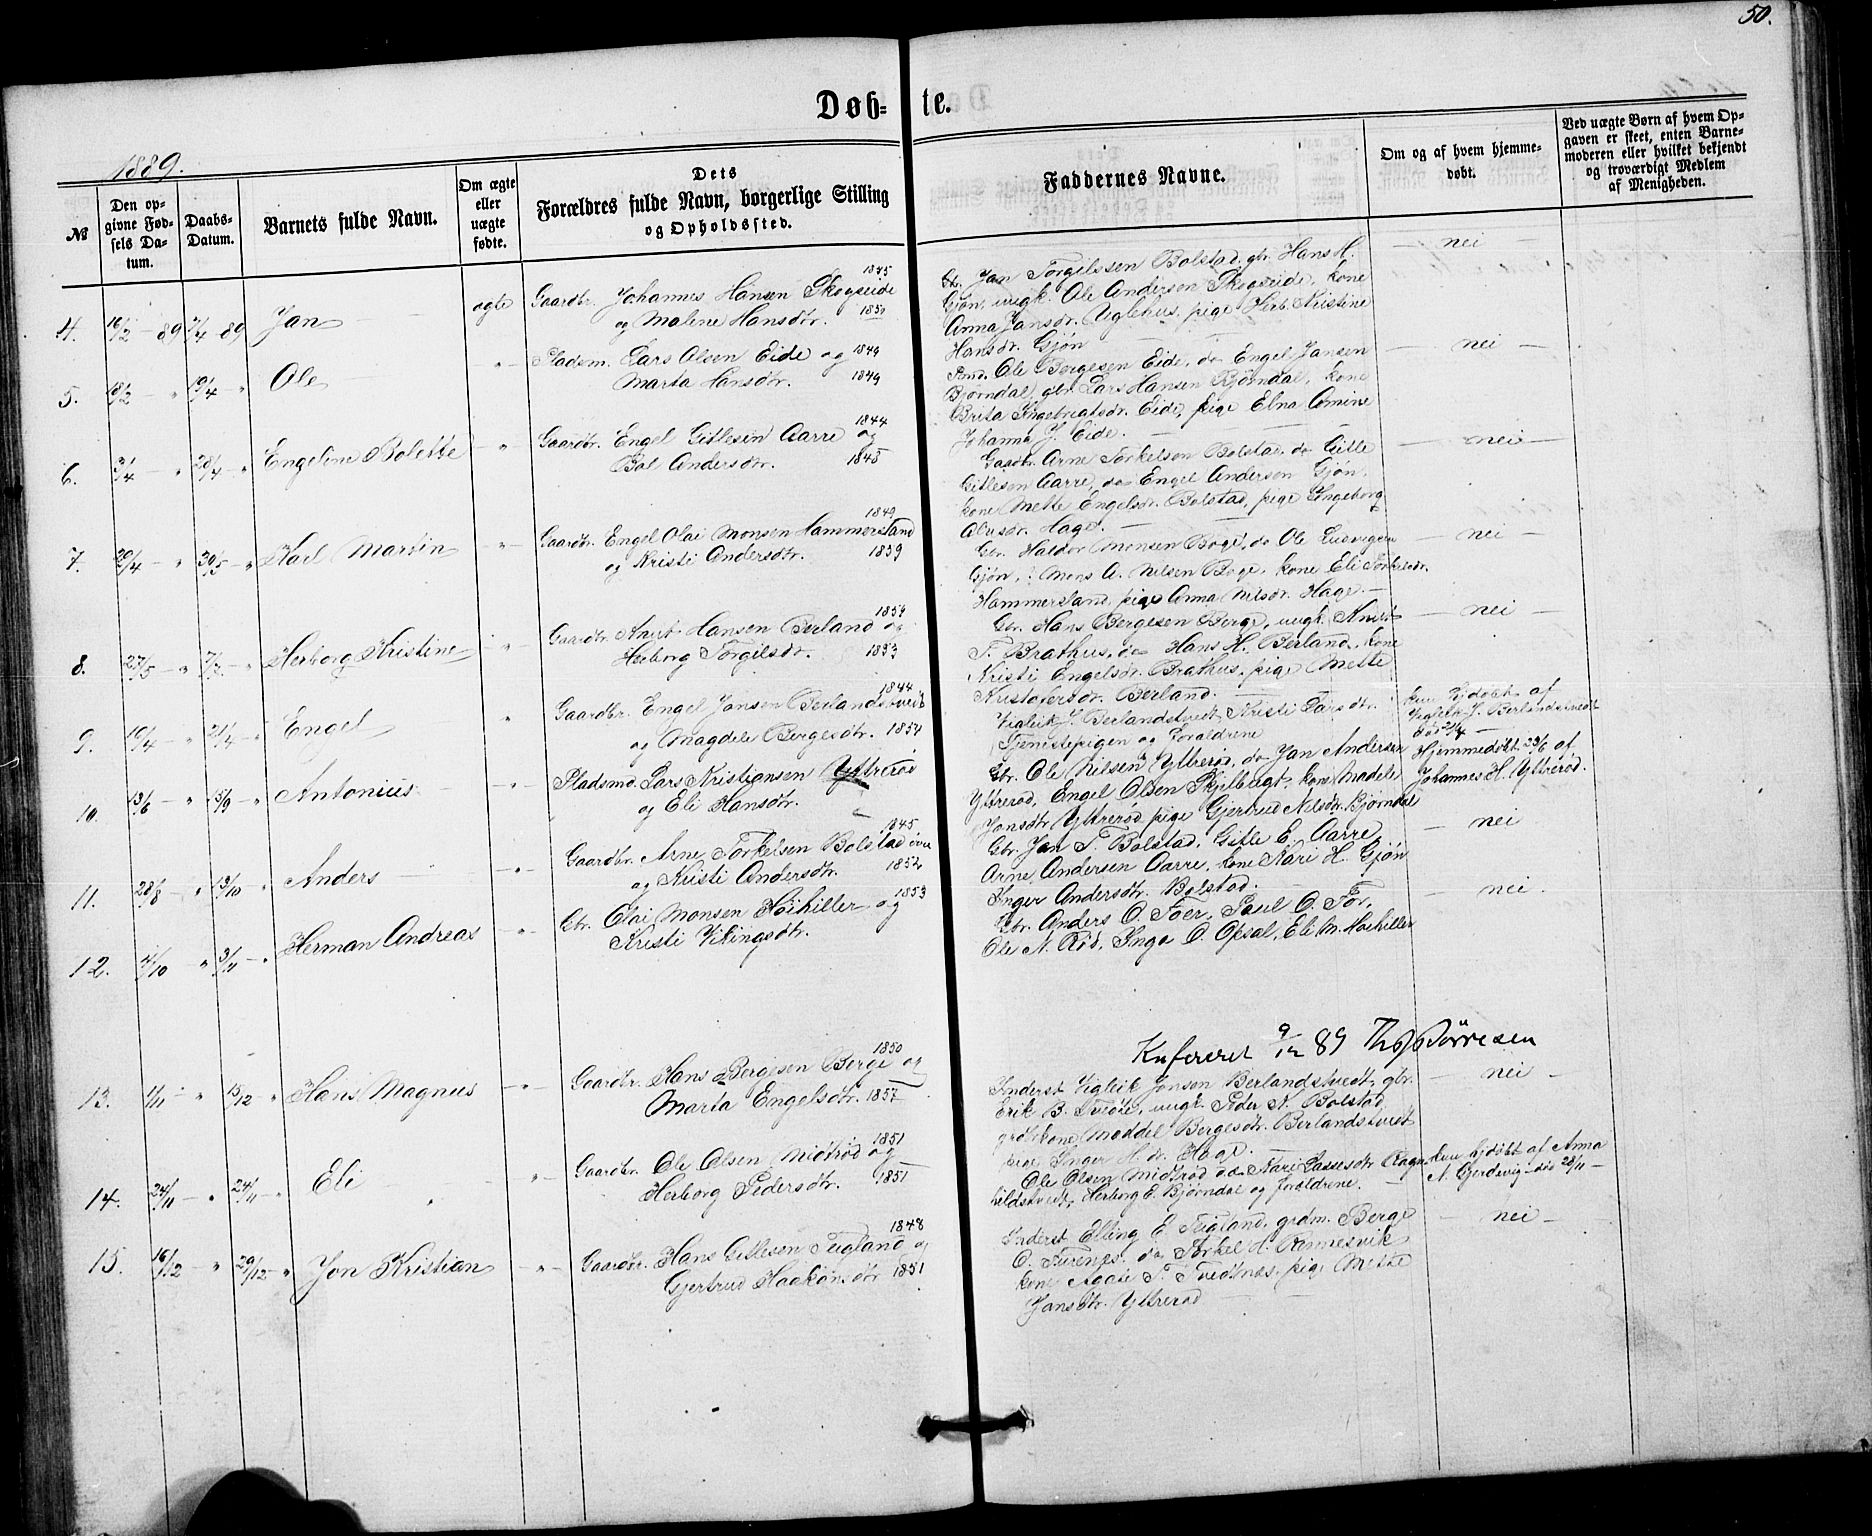 50.
Døb-te.
1889.
№
Den op-
givne Fød-
sels Da-
tum.
Daabs-
Datum.
Barnets fulde Navn.
Om ægte
eller
uægte
fødte.
Dets
Forældres fulde Navn, borgerlige Stilling
og Opholdssted.
Faddernes Navne.
Om og af hvem hjemme-
døbt.
Ved uægte Børn af hvem Op-
gaven er skeet, enten Barne-
moderen eller hvilket bekjendt
og troværdigt Medlem
af Menigheden.
4. 16/2 - 89 7/4 - 89 Jan ægte Gaardbr. Johannes Hansen Skogseide 1845
og Malene Hansdtr. 1850
Gbr. Jan Torgilssen Bolstad, gbr. Hans H.
Gjøn, ungk. Ole Andersen Skogseide, kone
Anna Jansdr. Uglehus, pige Herb. Kristine
Hansdr. Gjøn
- nei -
5. 18/2 - " 19/4 " Ole " Pladsm. Lars Olsen Eide og 1849
Marta Hansdtr. 1849
Ole Børgesen Eide, do Engel Jansen
Bjørndal, gbr. Lars Hansen Bjørndal, kone
Brita Ingebrigtsdr. Eide, pige Elna Comine
Johanna J. Eide.
- nei -
6. 3/4 - " 28/4 - " Engeline Bolette - " Gaardbr. Engel Gitlesen Aarre og 1844
Bol Andersdtr. 1848
Gaardbr. Arne Torkelsen Bolstad, do Gitle
Gitlesen Aarre, do Engel Andersen Gjøn,
kone Mette Engelsdr. Bolstad, pige Ingeborg
Olusdr. Hage.
- nei -
7. 20/4 - " 30/5 - " Karl Martin - " - Gaardbr. Engel Olai Monsen Hammersland 1849
og Kristi Andersdtr. 1839
Gbr. Haldor Monsen Boge, do Ole Ludvigsen
Gjøn, : Mons A. Nilsen Boge, kone Eli Torkelsdr.
Hammersland, pige Anna Nilsdr. Hage. -
- nei -
8. 27/5 - " 7/7 - " Herborg Kristine " - Gaardbr. Knut Hansen Berland og 1854
Herborg Torgilsdr. 1853
Gbr. Hans Bergesen Berge, ungk. Knut
T. Brathus, do Hans H. Berland, kone
Kristi Engelsdr. Brathus, pige Mette
Kristofersdr. Berland.
- nei -
9. 19/4 - " 21/4 - " Engel " Gaardbr. Engel Jansen Berlandstveit 1844
og Magdele Bergesdtr. 1854
Vigleik J. Berlandstvedt, Kristi Larsdtr.
Tjenestepigen og Forældrene
kun hjdøbt af
Vigleik J. Berlandstvedt
død 21/4 -
10. 13/6 - " 15/9 - " Antonius - " - Pladsmd. Lars Kristiansen Yttrerød
og Eli Hansdtr.
Gbr. Ole Nilsen Yttrerød, do Jan Andersen
Yttrerød, Engel Olsen Skjelbugt, kone Madele
Jansdtr Yttrerød, pige Gjertrud Nilsdtr. Bjørndal
Hjemmedøbt 23/6 af
Johannes H. Yttrerød.
11. 28/8 - " 13/10 - " Anders - " - Gaardbr. Arne Torkelsen Bolstad øvre 1845
og Kristi Andersdtr. 1852
Gbr. Jan T. Bolstad, Gitle E. Aarre,
Arne Andersen Aarre, kone Kari H. Gjøn
Inger Andersdtr. Bolstad.
- nei
12. 4/10 " 3/11 - " Herman Andreas - " - Gbr. Olai Monsen Høihiller og 1853
Kristi Vikingsdtr.
Gbr. Anders O. Foer, Paul O. For,
Ole N. Rød, Inga O. Opsal, Eli M. Høihiller
- nei -
Konfereret 9/12 89 Th Børresen
13. 1/11 - " 15/12 " Hans Magnus - " - Gaardbr. Hans Bergesen Berge og 1850
Marta Engelsdtr. 1857
Inderst Vigleik Jansen Berlandstvedt, gbr.
Erik B. Tvedt, ungk. Peder N. Bolstad
grdbrkone Maddel Bergesdtr. Berlandstvedt
pige Inger H. dr. Hage. -
- nei -
14. 24/11 - " 24/11 " Eli " Gaardbr. Ole Olsen Midtrød og 1851
Herborg Pedersdtr. 1851
Ole Olsen Midtrød Kari Lassesdtr Ragn-
hildstvedt, Herborg E. Bjørndal og forældrene. -
kun hjdøbt af Anna
N. Gjerdevig - død 28/11 -
15. 16/12 - " 29/12 " Jon Kristian - " - Gaardbr. Hans Gitlesen Teigland og 1848
Gjertrud Haakonsdtr 1851
Inderst Elling E. Teigland, grdm. Berge
O. Turenes, do Torkel H. Rennesvik
kone Agate T. Tvedtnæs, pige Mette
Jansdtr. Yttrerød
- nei -